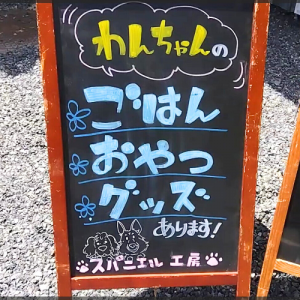 わんちゃんの
ごはん
おやつ
グッズ
あります!
スパニエル 工房